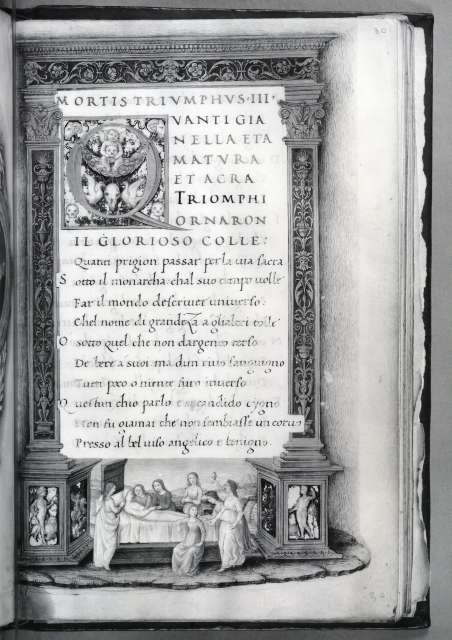 MORTIS TRIVMPHVS·III·
QVANTI GIA
NELLA ETA
MATVRA
ET ACRA
TRIOMPHI
ORNARON
IL GLORIOSO COLLE:
Quanti prigion passar per la uia sacra
Sotto il monarcha chal suo tempo uolle
Far il mondo descriuer uniuerso.
Chel nome di grandeza a glialtri tolle
O sotto quel che non dargento terso
De bere a suoi ma dun riuo sanguigno
Tutti poco o niente furo inuerso
Questun chio parlo e sì candido cygno
non fu giamai che non sembiasse un coruo
Presso al bel uiso angelico e benigno.
30